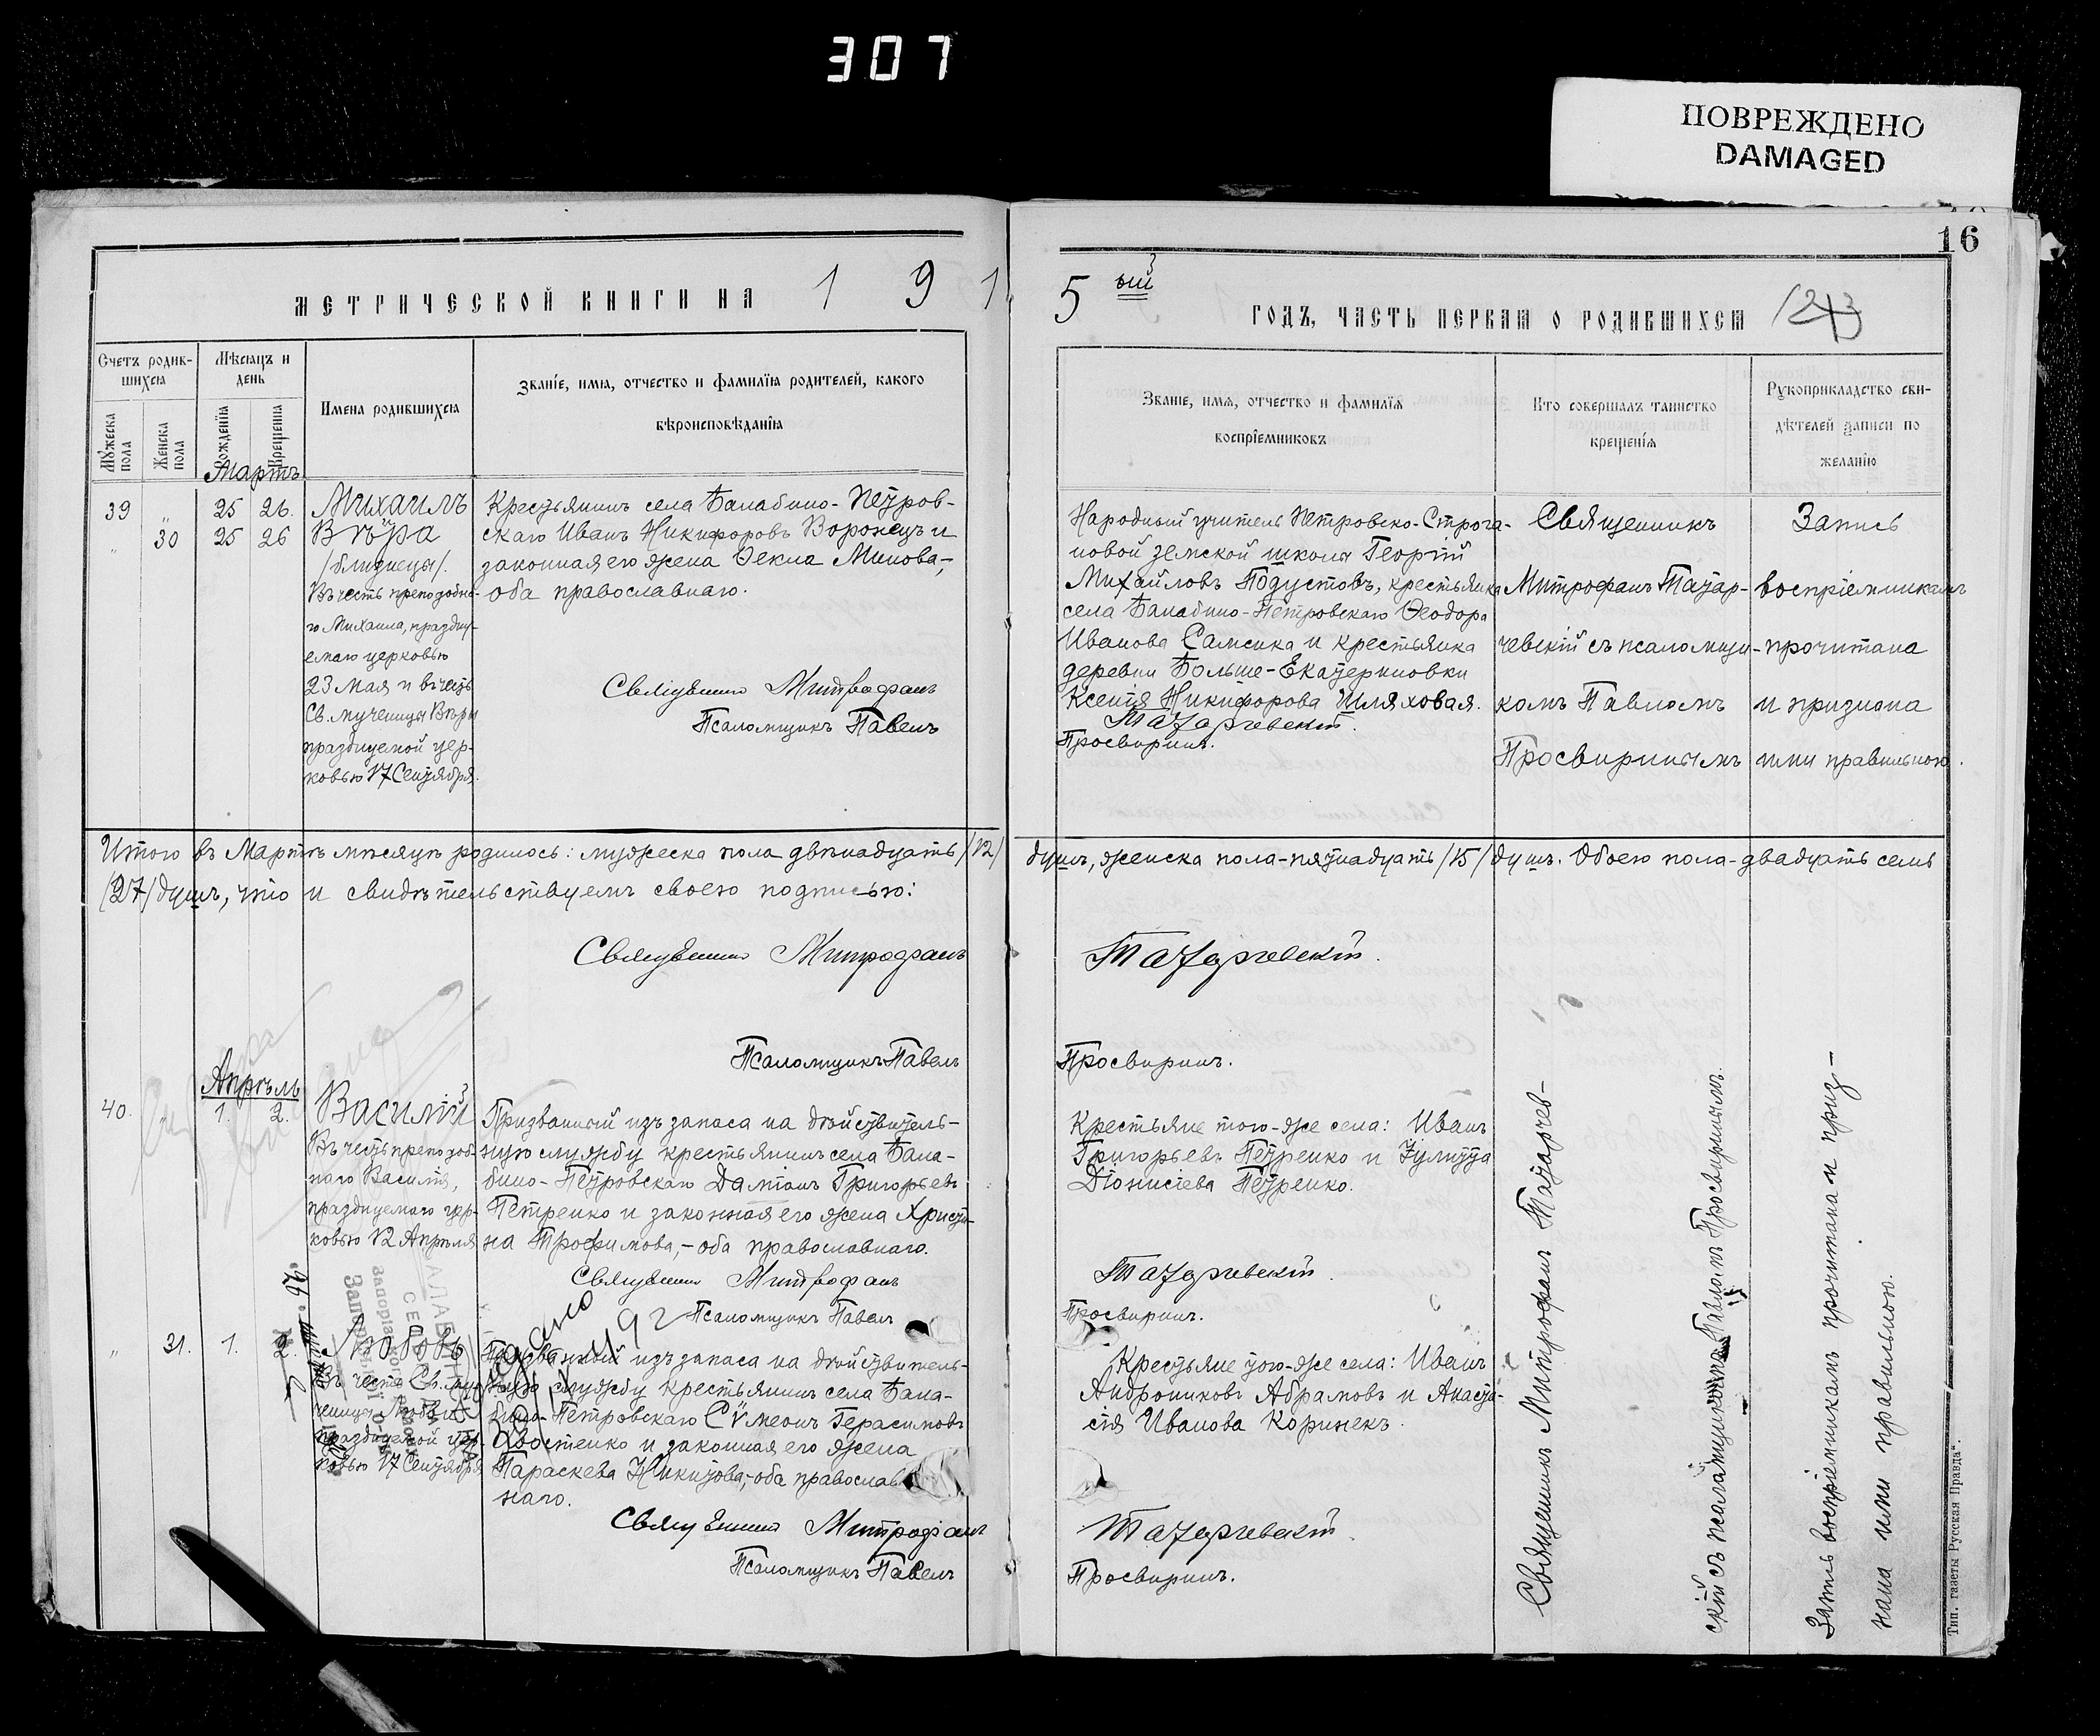 307
ПОВРЕЖДЕНО
DAMAGED
16
МЕТРИЧЕСКОЙ КНИГИ НА 1 9 1
5 ый ГОДЪ, ЧАСТЬ ПЕРВАЯ О РОДИВШИХСЯ
Счетъ родив-
шихся
Мѣсяцъ и
день
Мужеска пола
Женска пола
Рожденія
Крещенія
Имена родившихся
Званіе, имя, отчество и фамилія родителей, какого
вѣроисповѣданія
Званіе, имя, отчество и фамилія
воспріемниковъ
Кто совершалъ таинство
крещенія
Рукоприкладство сви-
дѣтелей записи по
желанію
Мартъ
39 " 25 26.
" 30 25 26
Михаилъ
Вѣра
/близнецы/.
Въ честь преподобна-
го Михаила, праздну-
емаго церковью
23 мая и въ честь
Св. мученицы Вѣры
празднуемой цер-
ковью 17 Сентября.
Крестьянинъ села Балабино-Петров-
скаго Иванъ Никифоровъ Воронецъ и
законная его жена Ѳекла Минова,-
оба православнаго.
Священникъ Митрофанъ
Псаломщикъ Павелъ
Народный учитель Петровско-Строга-
новой земской школы Георгій
Михайловъ Подустовъ, крестьянка
села Балабино-Петровскаго Ѳеодора
Иванова Самсика и крестьянка
деревни Больше-Екатериновки
Ксенія Никифорова Шляховая.
Татарчевскій.
Просвиринъ.
Священникъ
Митрофанъ Татар-
чевскій съ псаломщи-
комъ Павломъ
Просвиринымъ
Запись
воспріемникамъ
прочитана
и признана
ими правильною.
Итого въ Мартѣ мѣсяцѣ родилось: мужеска пола двѣнадцать /12/ душъ, женска пола-пятнадцать /15/ душъ. Обоего пола-двадцать семь
/27/ душъ, что и свидѣтельствуемъ своею подписью:
Священникъ Митрофанъ
Татарчевскій.
Псаломщикъ Павелъ
Просвиринъ.
Апрѣль
40. " 1. 2.
Василій
Въ честь преподоб-
наго Василія,
празднуемаго цер-
ковью 12 Апрѣля
Призванный изъ запаса на дѣйствитель-
ную службу крестьянинъ села Бала-
бино-Петровскаго Даміанъ Григорьевъ
Петренко и законная его жена Христи-
на Трофимова,-оба православнаго.
Священникъ Митрофанъ
Псаломщикъ Павелъ
Крестьяне того-же села: Иванъ
Григорьевъ Петренко и Іулитта
Діонисіева Петренко.
Татарчевскій.
Просвиринъ.
" 31. 1. 2.
Любовь
Въ честь Св. му-
ченицы Любви
празднуемой цер-
ковью 17 Сентября
Призванный изъ запаса на дѣйствитель-
ную службу крестьянинъ села Бала-
бино-Петровскаго Сѵмеонъ Герасимовъ
Хвостенко и законная его жена
Параскева Никитова,-оба православ
наго.
Священникъ Митрофанъ
Псаломщикъ Павелъ
Крестьяне того-же села: Иванъ
Андрониковъ Абрамовъ и Анаста-
сія Иванова Коринекъ.
Татарчевскій.
Просвиринъ.
Священникъ Митрофанъ Татарчев-
скій съ псаломщикомъ Павломъ Просвиринымъ.
Запись воспріемникамъ прочитана и приз-
нана ими правильною.
Тип. газеты „Русская Правда“.